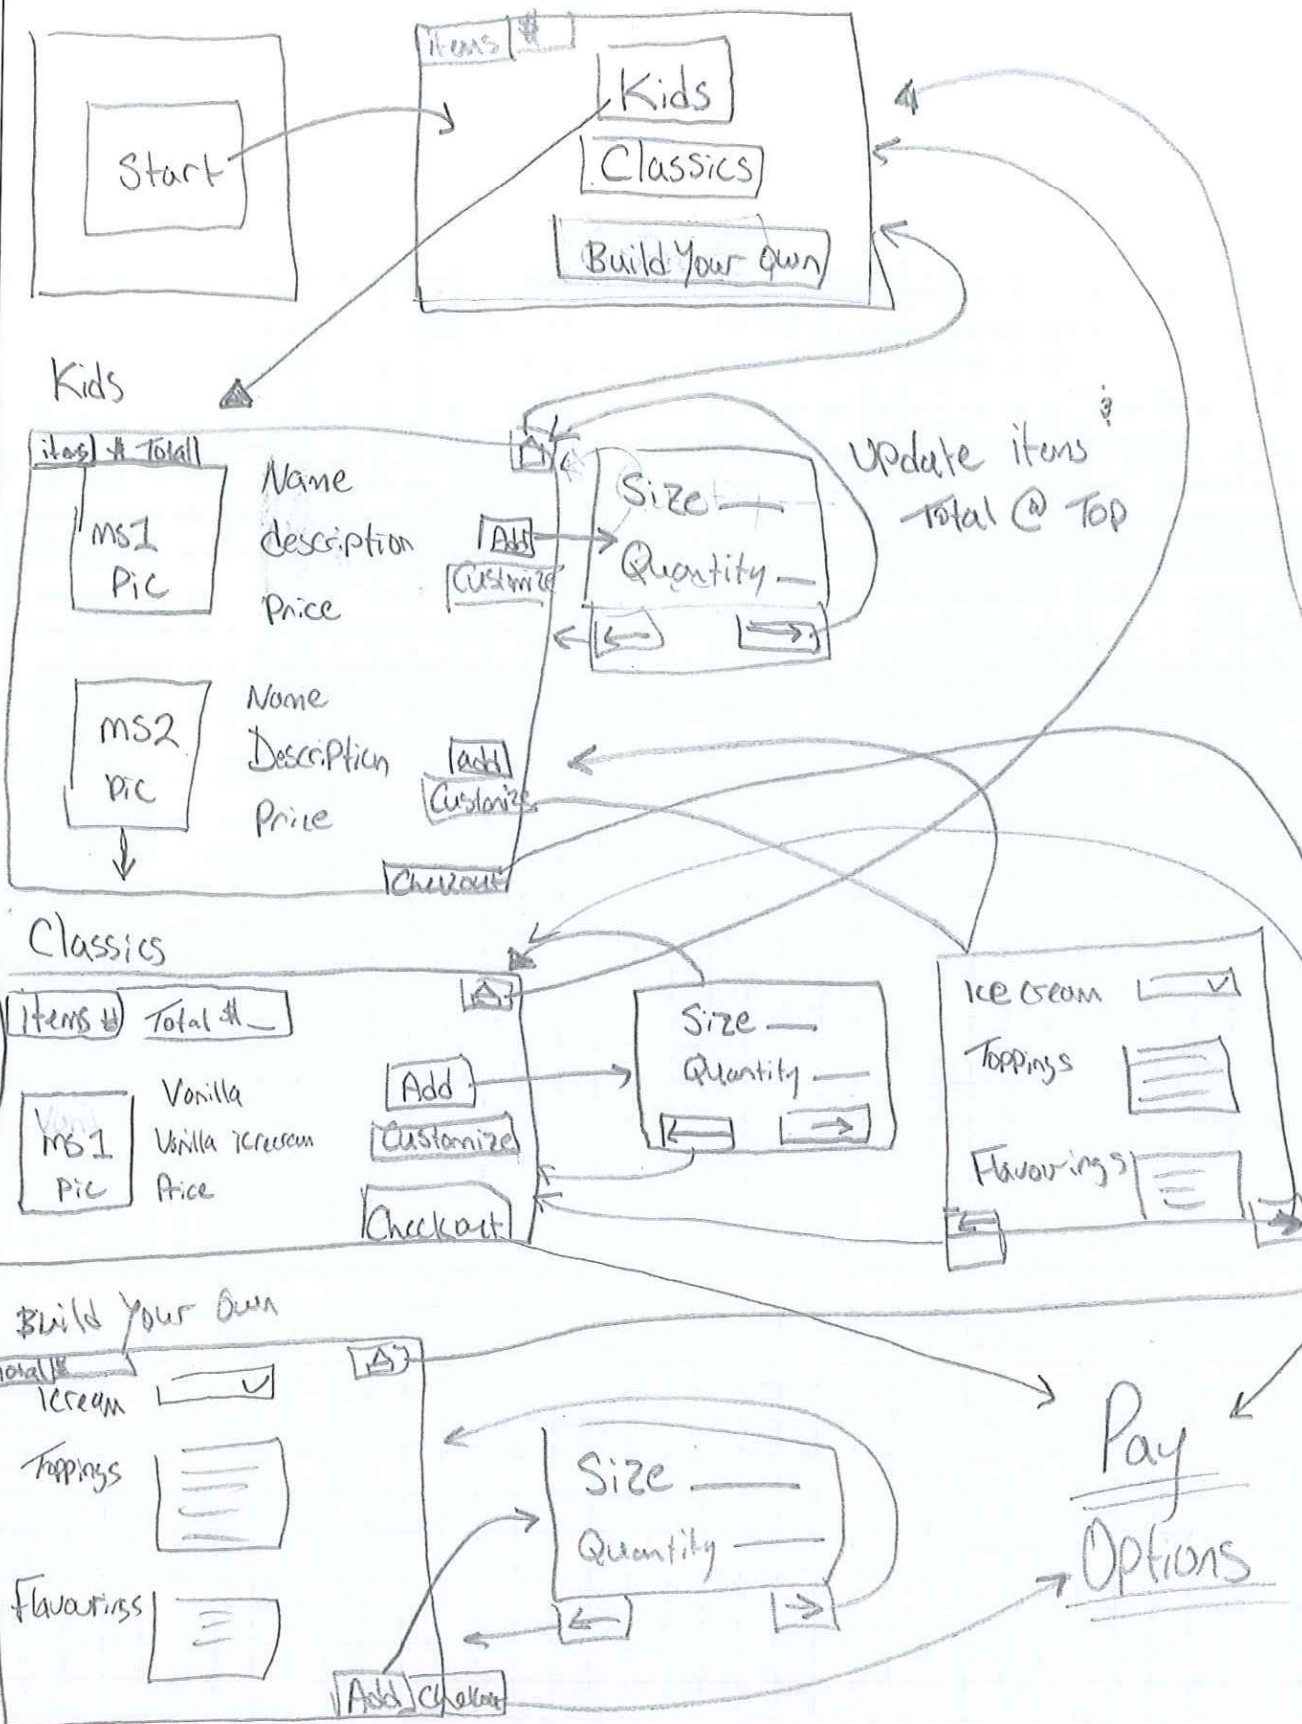 items #
Kids
Start
Classics
Build Your Own
Kids
items # Total
Name
description
Price
ms1
Pic
Add
Customize
Size
Quantity
update items &
Total @ Top
ms2
pic
Name
Description
Price
add
Customize
Checkout
Classics
items # Total #_
ms1
pic
Vanilla
Vanilla icecream
Price
Add
Customize
Checkout
Size
Quantity
Ice cream
Toppings
Flavourings
Build Your Own
Total #
Icream
Toppings
Flavourings
Add
Checkout
Size
Quantity
Pay
Options